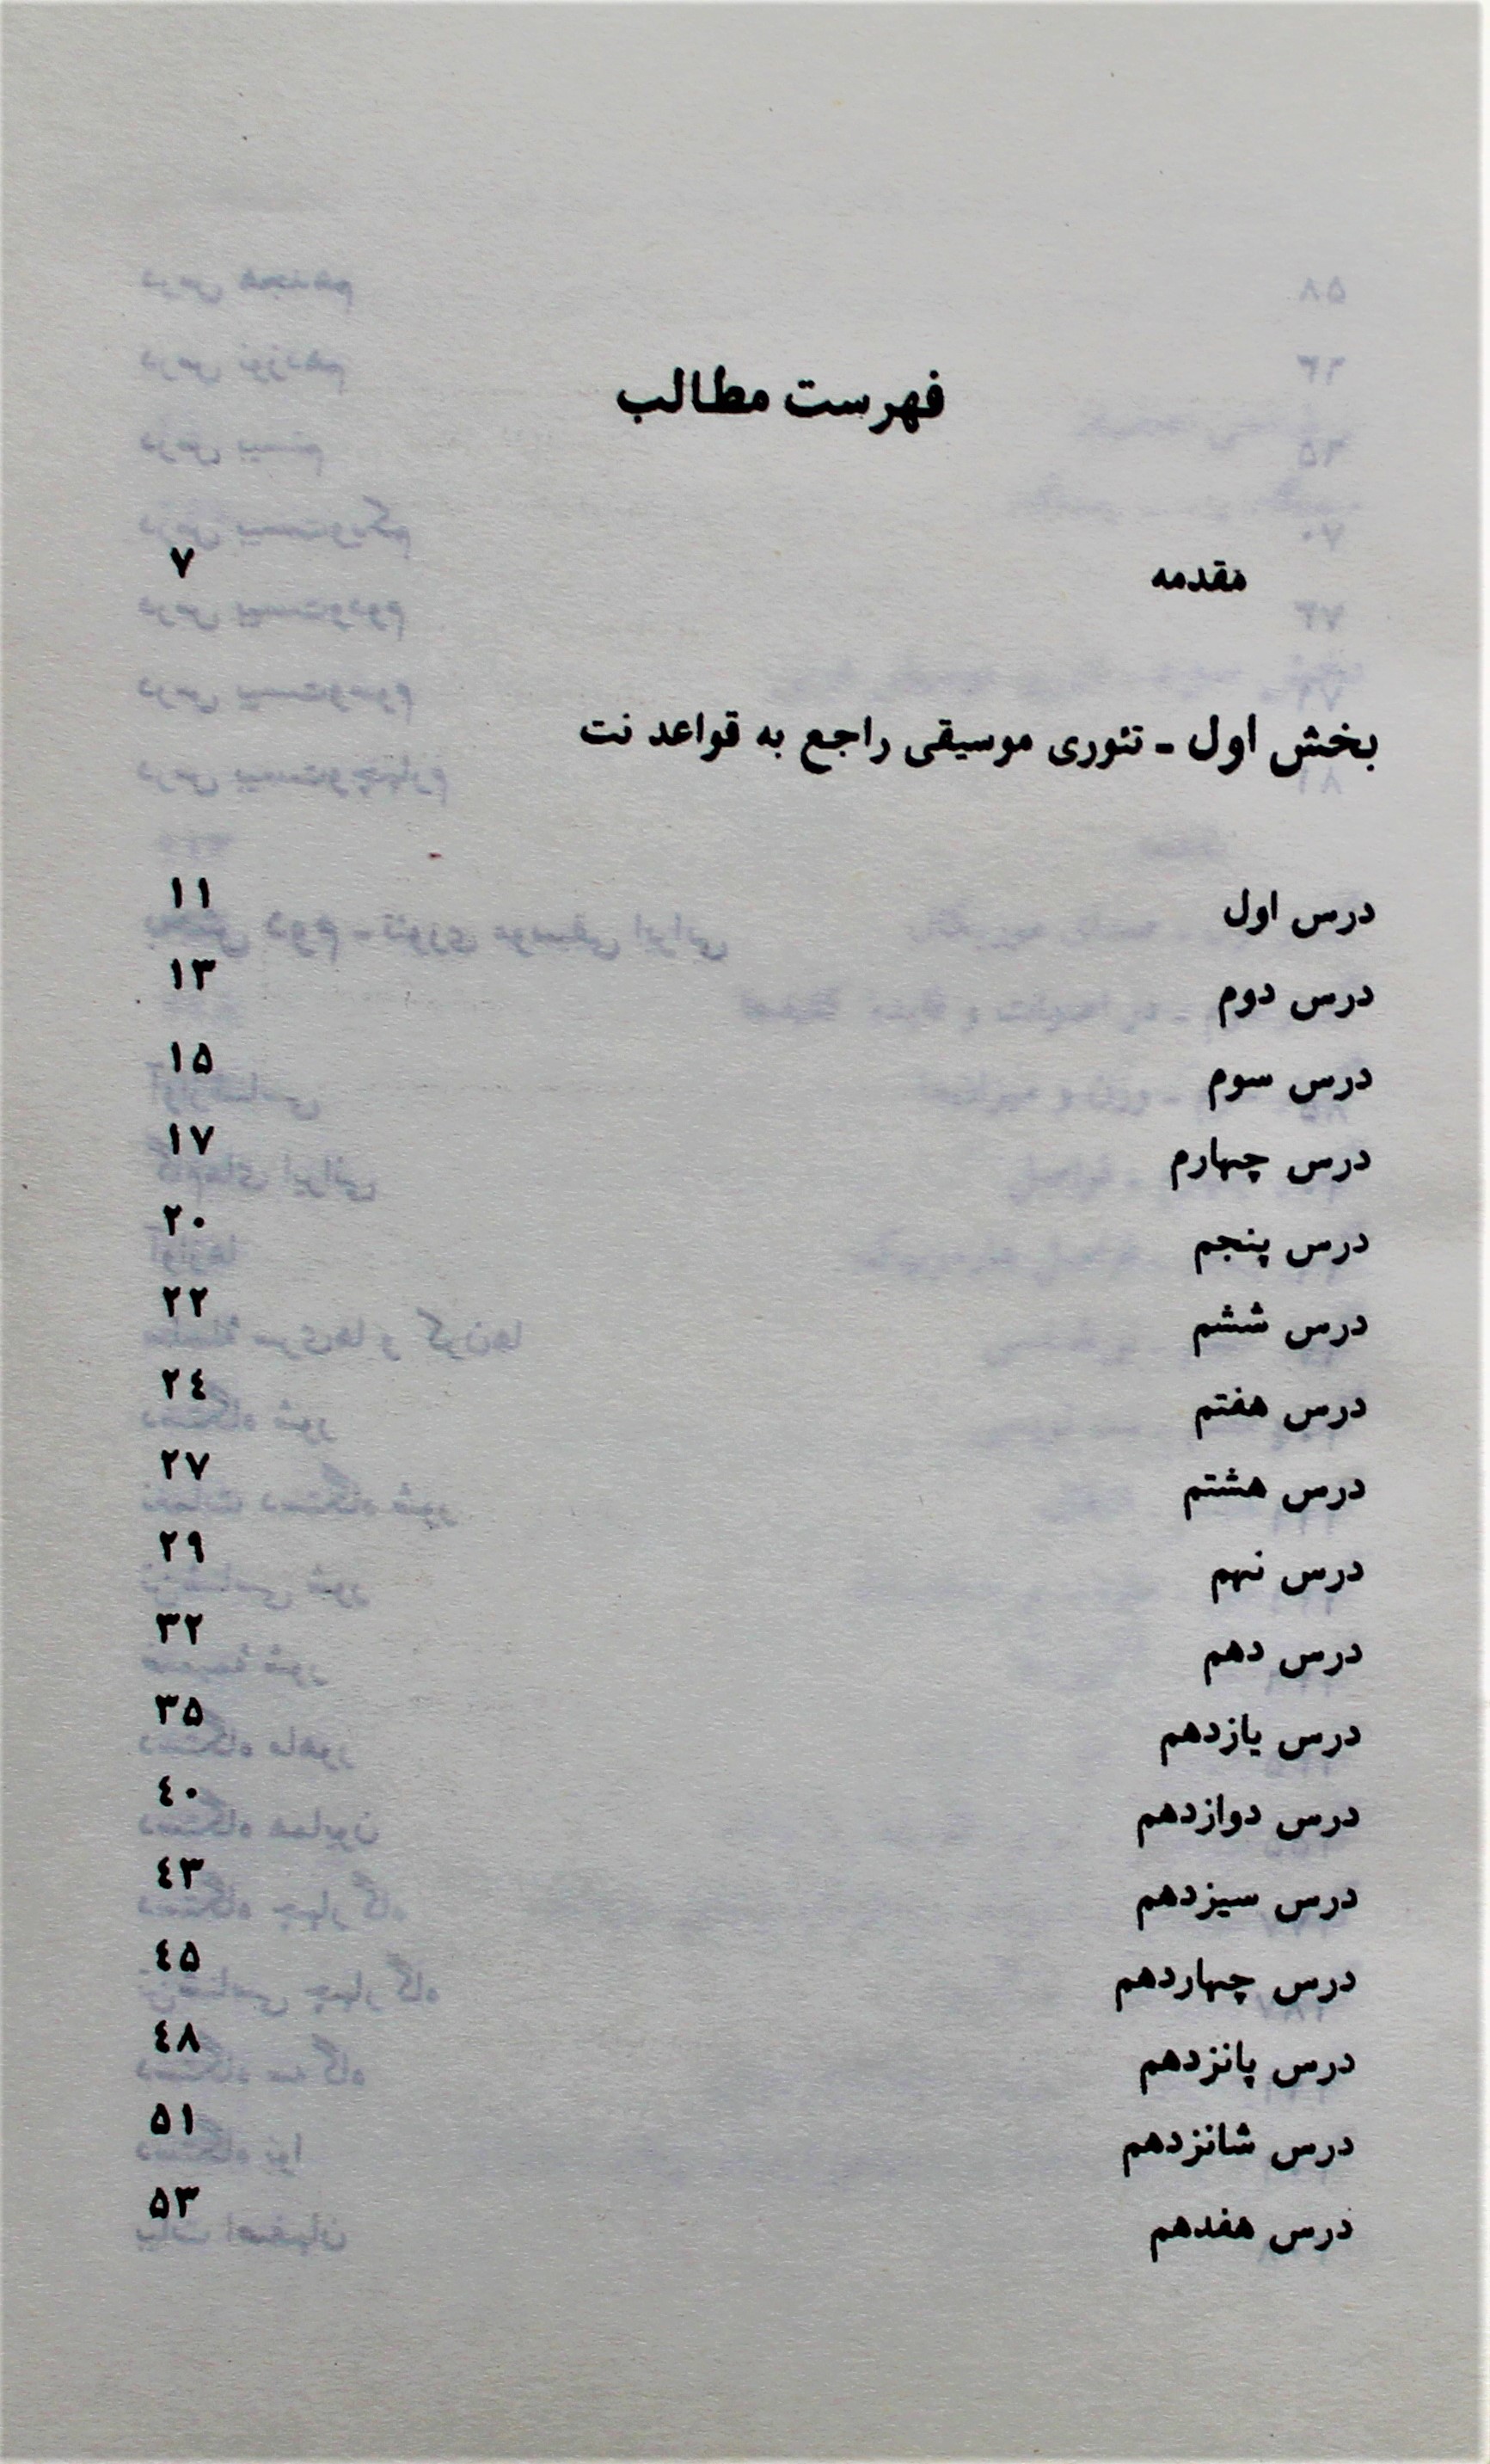 فهرست مطالب
مقدمه ۷
بخش اول - تئوری موسیقی راجع به قواعد نت
درس اول ۱۱
درس دوم ۱۳
درس سوم ۱۵
درس چهارم ۱۷
درس پنجم ۲۰
درس ششم ۲۲
درس هفتم ۲٤
درس هشتم ۲۷
درس نهم ۲۹
درس دهم ۳۲
درس یازدهم ۳۵
درس دوازدهم ٤۰
درس سیزدهم ٤۳
درس چهاردهم ٤۵
درس پانزدهم ٤۸
درس شانزدهم ۵۱
درس هفدهم ۵۳